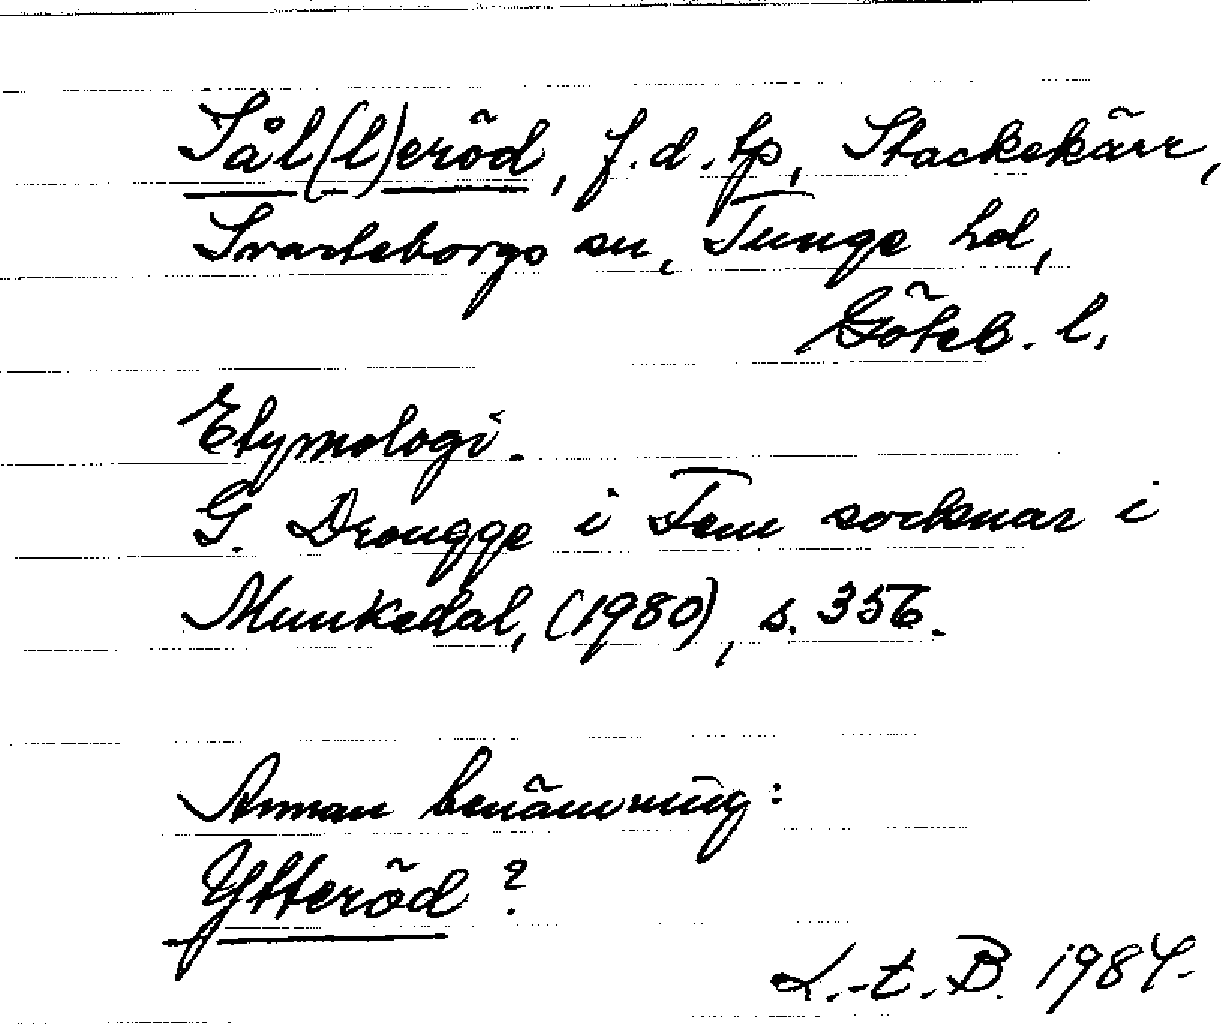 Sål(l)eröd, f.d. tp, Stackekärr,
Svarteborgs sn, Tunge hd,
Göteb. l.
Etymologi.
G. Drougge i Fem socknar i
Munkedal, (1980), s. 356.
Annan benämning:
Ytteröd?
L.-t. B. 1984.